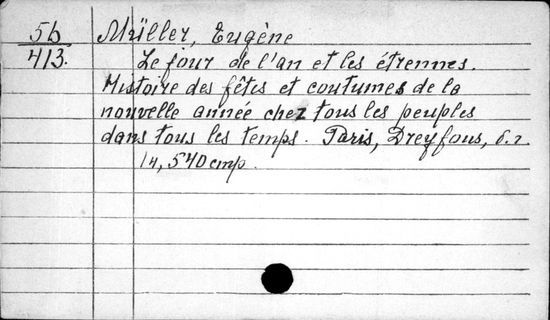 56 Müller, Eugène
413. Le jour de l'an et les étrennes.
Histoire des fêtes et coutumes de la
nouvelle année chez tous les peuples
dans tous les temps. Paris, Dreyfous, б.г.
14, 540 стр.